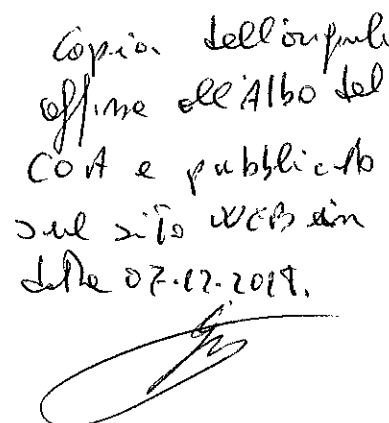 Copia dell'originale
affissa all'Albo del
COA e pubblicato
sul sito WEB in
data 07.12.2018.